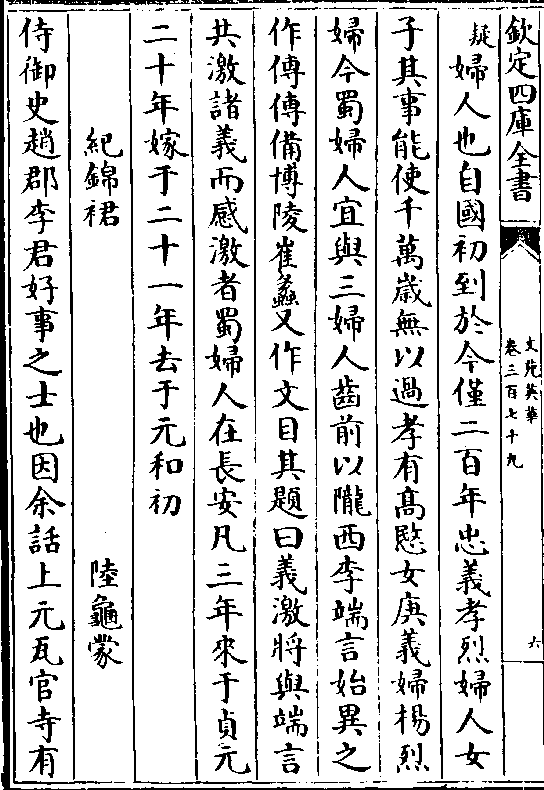 欽定四庫全書
文苑英華
卷三百七十九
六
疑婦人也自國初到於今僅二百年忠義孝烈婦人女
子其事能使千萬歲無以過孝有髙愍女庚義婦楊烈
婦今蜀婦人宜與三婦人齒前以隴西李端言始異之
作傳傳備博陵崔蠡又作文目其題曰義激將與端言
共激諸義而感激者蜀婦人在長安凡三年來于貞元
二十年嫁于二十一年去于元和初
紀錦裙
陸龜蒙
侍御史趙郡李君好事之士也因余話上元瓦官寺有